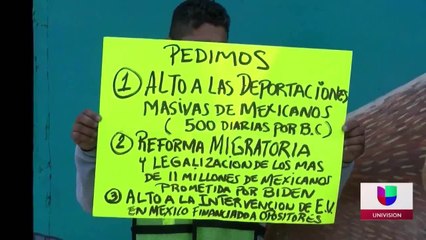 PEDIMOS
1 ALTO A LAS DEPORTACIONES
MASIVAS DE MEXICANOS
( 500 DIARIAS POR B.C)
2 REFORMA MIGRATORIA
Y LEGALIZACION DE LOS MAS
DE 11 MILLONES DE MEXICANOS
PROMETIDA POR BIDEN
3 ALTO A LA INTERVENCION DE E.U.
EN MÉXICO FINANCIADO A OPOSITORES
UNIVISION